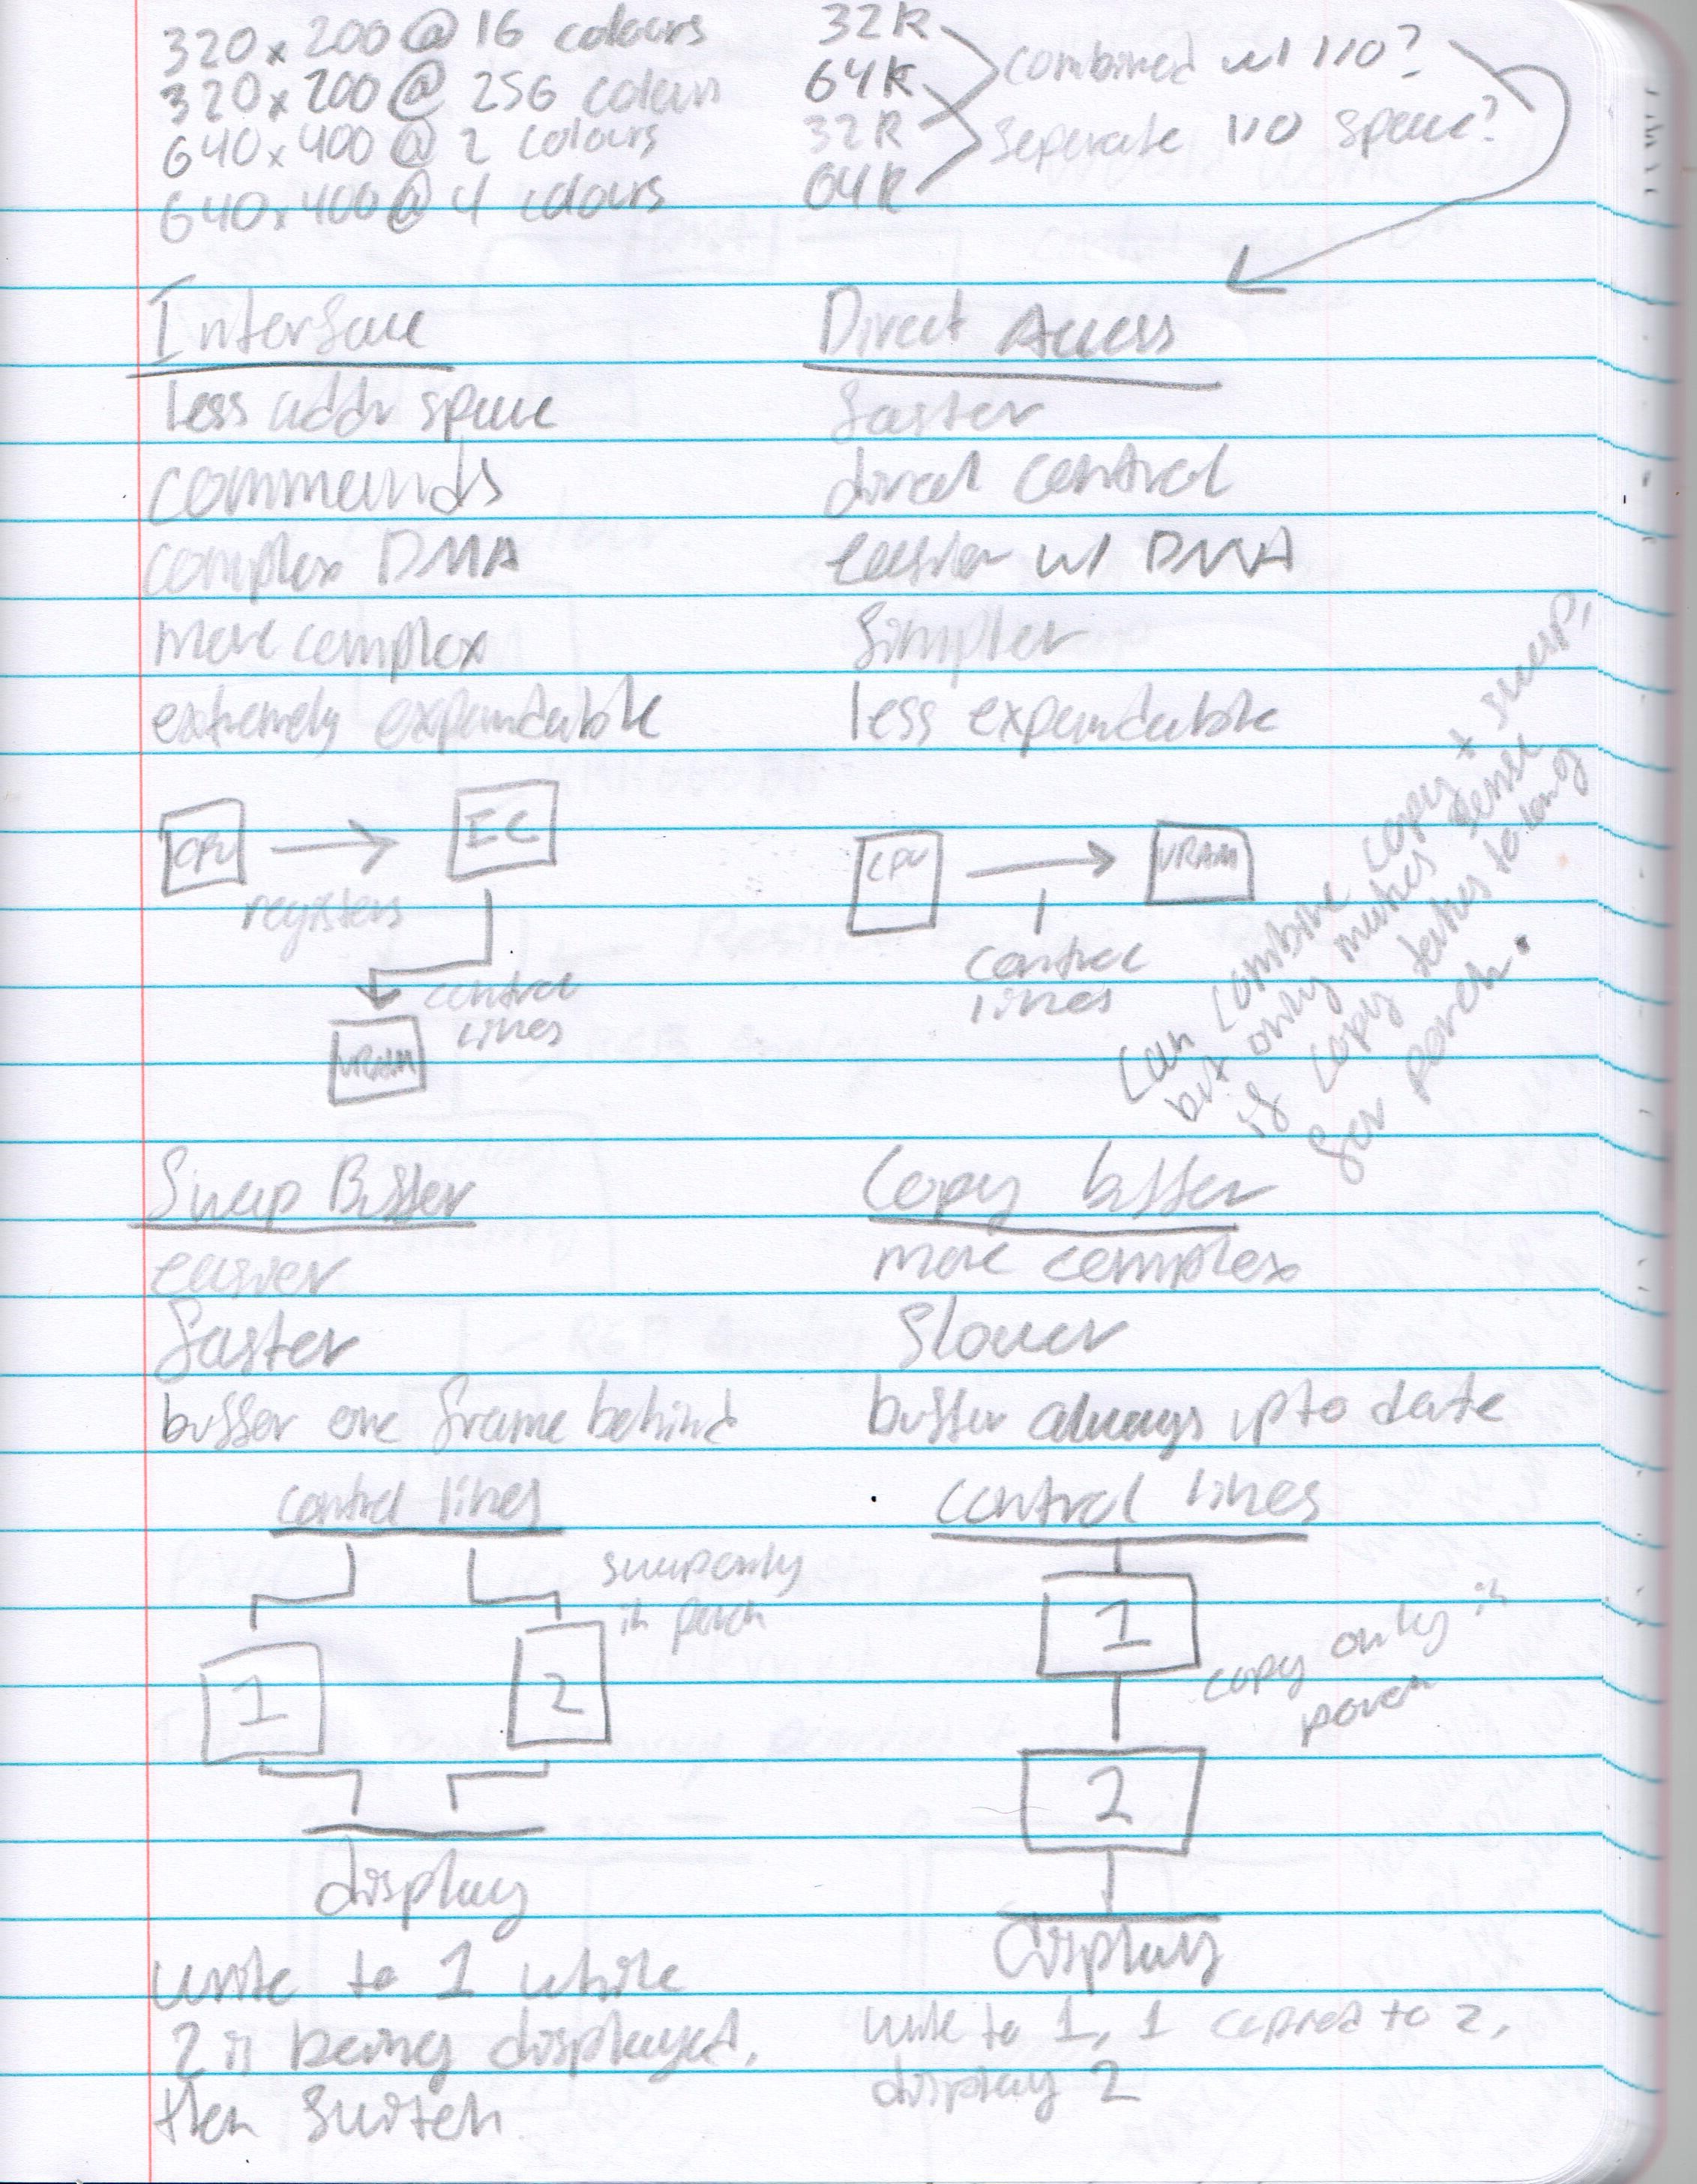 320x200@16 colours 32K
320x200@ 256 colours 64K combined w/ I/O?
640x400@ 2 colours 32K Seperate I/O space?
640x400@ 4 colours 64K
Interface
less addr space
commands
complex DMA
more complex
extremely expandable
CPU
registers
IC
control
lines
VRAM
Direct Access
faster
direct control
easier w/ DMA
Simpler
less expandable
CPU
VRAM
control
lines
Can combine copy + swap,
but only makes sense
if copy takes to long
for porch.
Swap Buffer
easier
faster
buffer one frame behind
control lines
swap only
in porch
1
2
display
write to 1 while
2 is being displayed,
then switch
Copy buffer
more complex
Slower
buffer always up to date
control lines
1
copy only in
porch
2
Display
write to 1, 1 copied to 2,
display 2